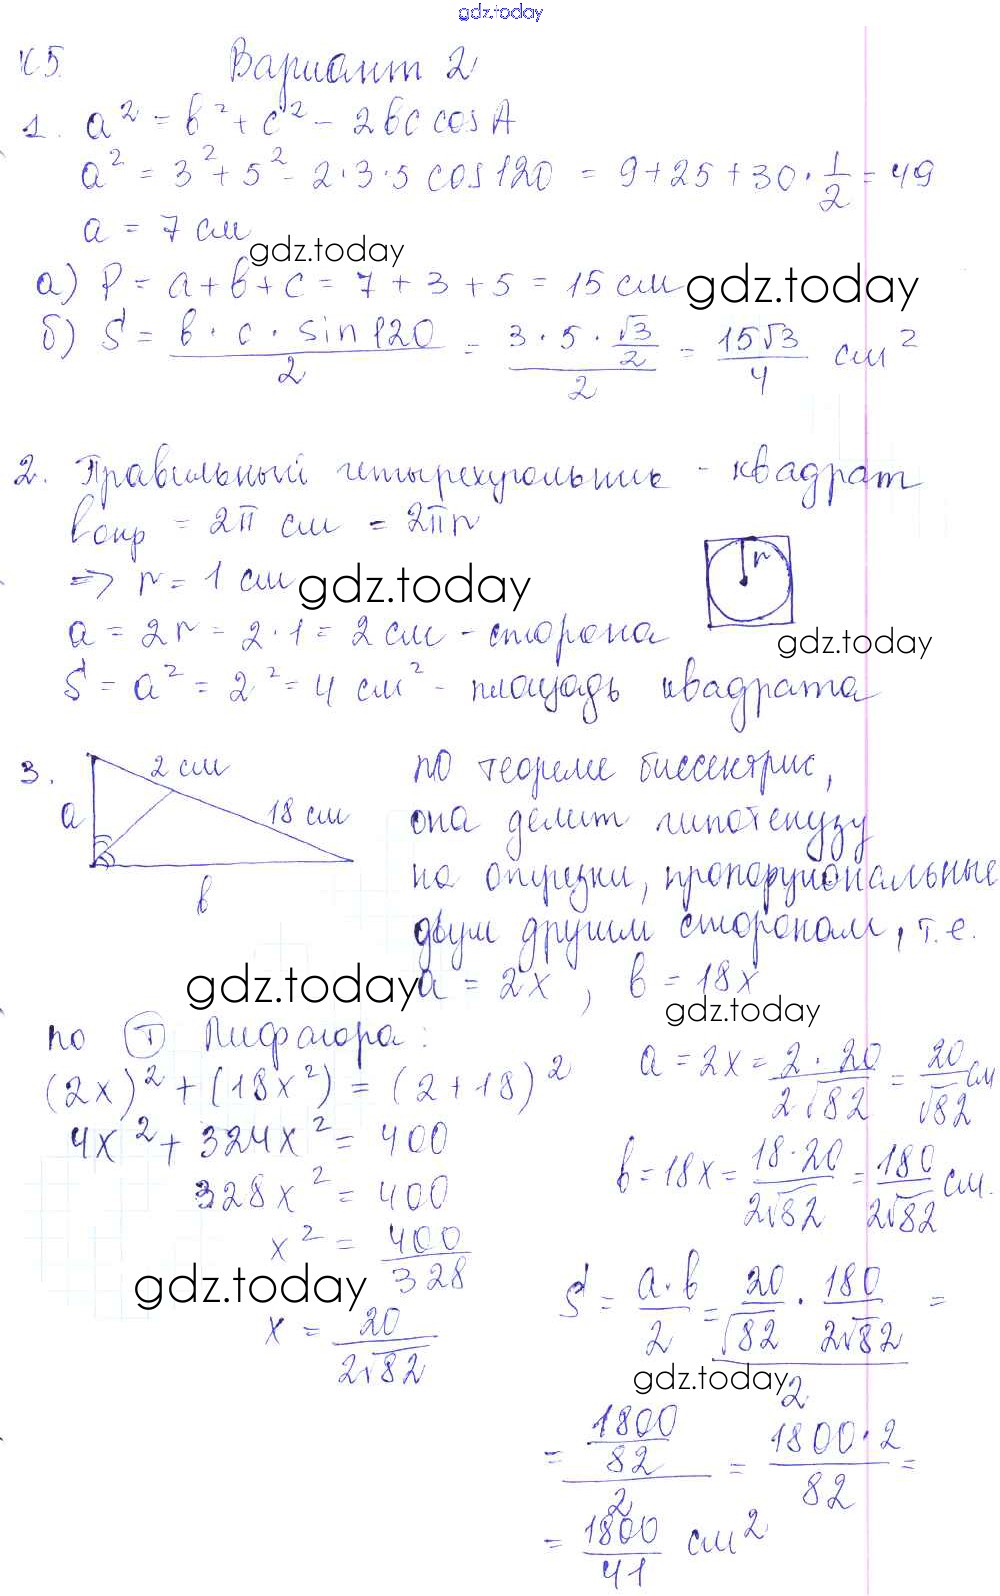 gdz.today
К5. Вариант 2
1. a² = b² + c² - 2bc cosA
a² = 3² + 5² - 2·3·5 cos120 = 9+25+30·1/2 = 49
a = 7 см
gdz.today
а) P = a+b+c = 7+3+5 = 15 см gdz.today
б) S = b·c·sin120/2 = 3·5·√3/2/2 = 15√3/4 см²
2. Правильный четырехугольник - квадрат
lокр = 2π см = 2πr
r
=> r = 1 см gdz.today
a = 2r = 2·1 = 2 см - сторона
gdz.today
S = a² = 2² = 4 см² - площадь квадрата
3. 2 см
a 18 см
b
по теореме биссектрис,
она делит гипотенузу
на отрезки, пропорциональные
двум другим сторонам, т.е.
gdz.today a = 2x, b = 18x
gdz.today
по Т Пифагора:
(2x)² + (18x²) = (2+18)²
4x² + 324x² = 400
328x² = 400
x² = 400/328
gdz.today
x = 20/2√82
a = 2x = 2·20/2√82 = 20/√82 см
b = 18x = 18·20/2√82 = 180/2√82 см.
S = a·b/2 = 20/√82 · 180/2√82 / 2 =
gdz.today
= 1800/82 / 2 = 1800·2/82 =
= 1800/41 см²